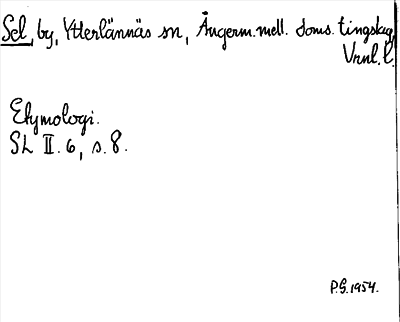 Sel, by, Ytterlännäs sn, Ångerm. mell. doms. tingslag
Vrnl. l.
Etymologi.
SL II. 6, s. 8.
P.G. 1954.